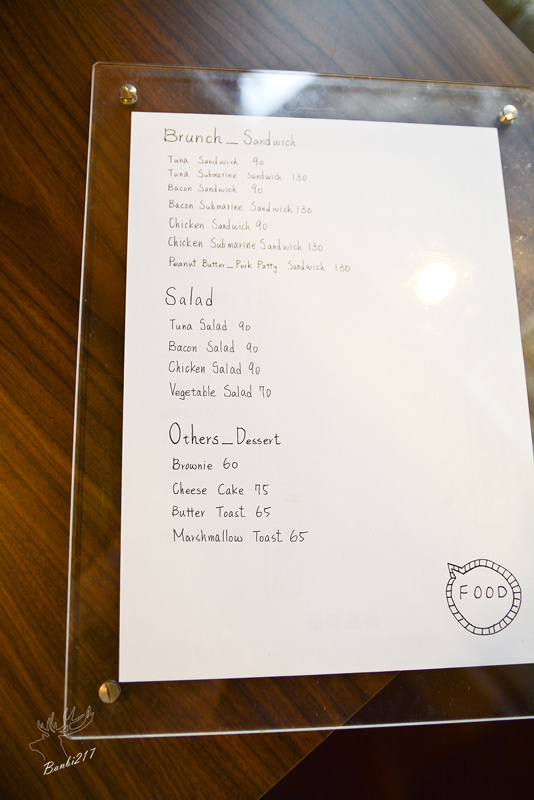 Brunch_Sandwich
Tuna Sandwich 90
Tuna Submarine Sandwich 130
Bacon Sandwich 90
Bacon Submarine Sandwich 130
Chicken Sandwich 90
Chicken Submarine Sandwich 130
Peanut Butter_Pork Patty Sandwich 130
Salad
Tuna Salad 90
Bacon Salad 90
Chicken Salad 90
Vegetable Salad 70
Others_Dessert
Brownie 60
Cheese Cake 75
Butter Toast 65
Marshmallow Toast 65
FOOD
Banbi217